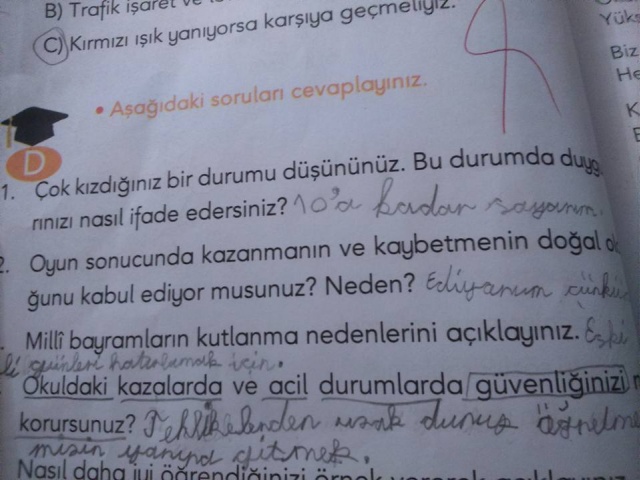 B) Trafik işaret ve
C) Kırmızı ışık yanıyorsa karşıya geçmeliyiz.
Yüks
Biz
He
K
E
• Aşağıdaki soruları cevaplayınız.
D
1. Çok kızdığınız bir durumu düşününüz. Bu durumda duyg
rınızı nasıl ifade edersiniz? 10'a kadar sayarım.
2. Oyun sonucunda kazanmanın ve kaybetmenin doğal ol
ğunu kabul ediyor musunuz? Neden? Ediyorum çünkü
Millî bayramların kutlanma nedenlerini açıklayınız. Eski
günleri hatırlamak için.
Okuldaki kazalarda ve acil durumlarda güvenliğinizi n
korursunuz? Tehlikelerden uzak durup öğretme
mizin yanına gitmek.
Nasıl daha iyi öğrendiğinizi örnek vererek açıklayınız